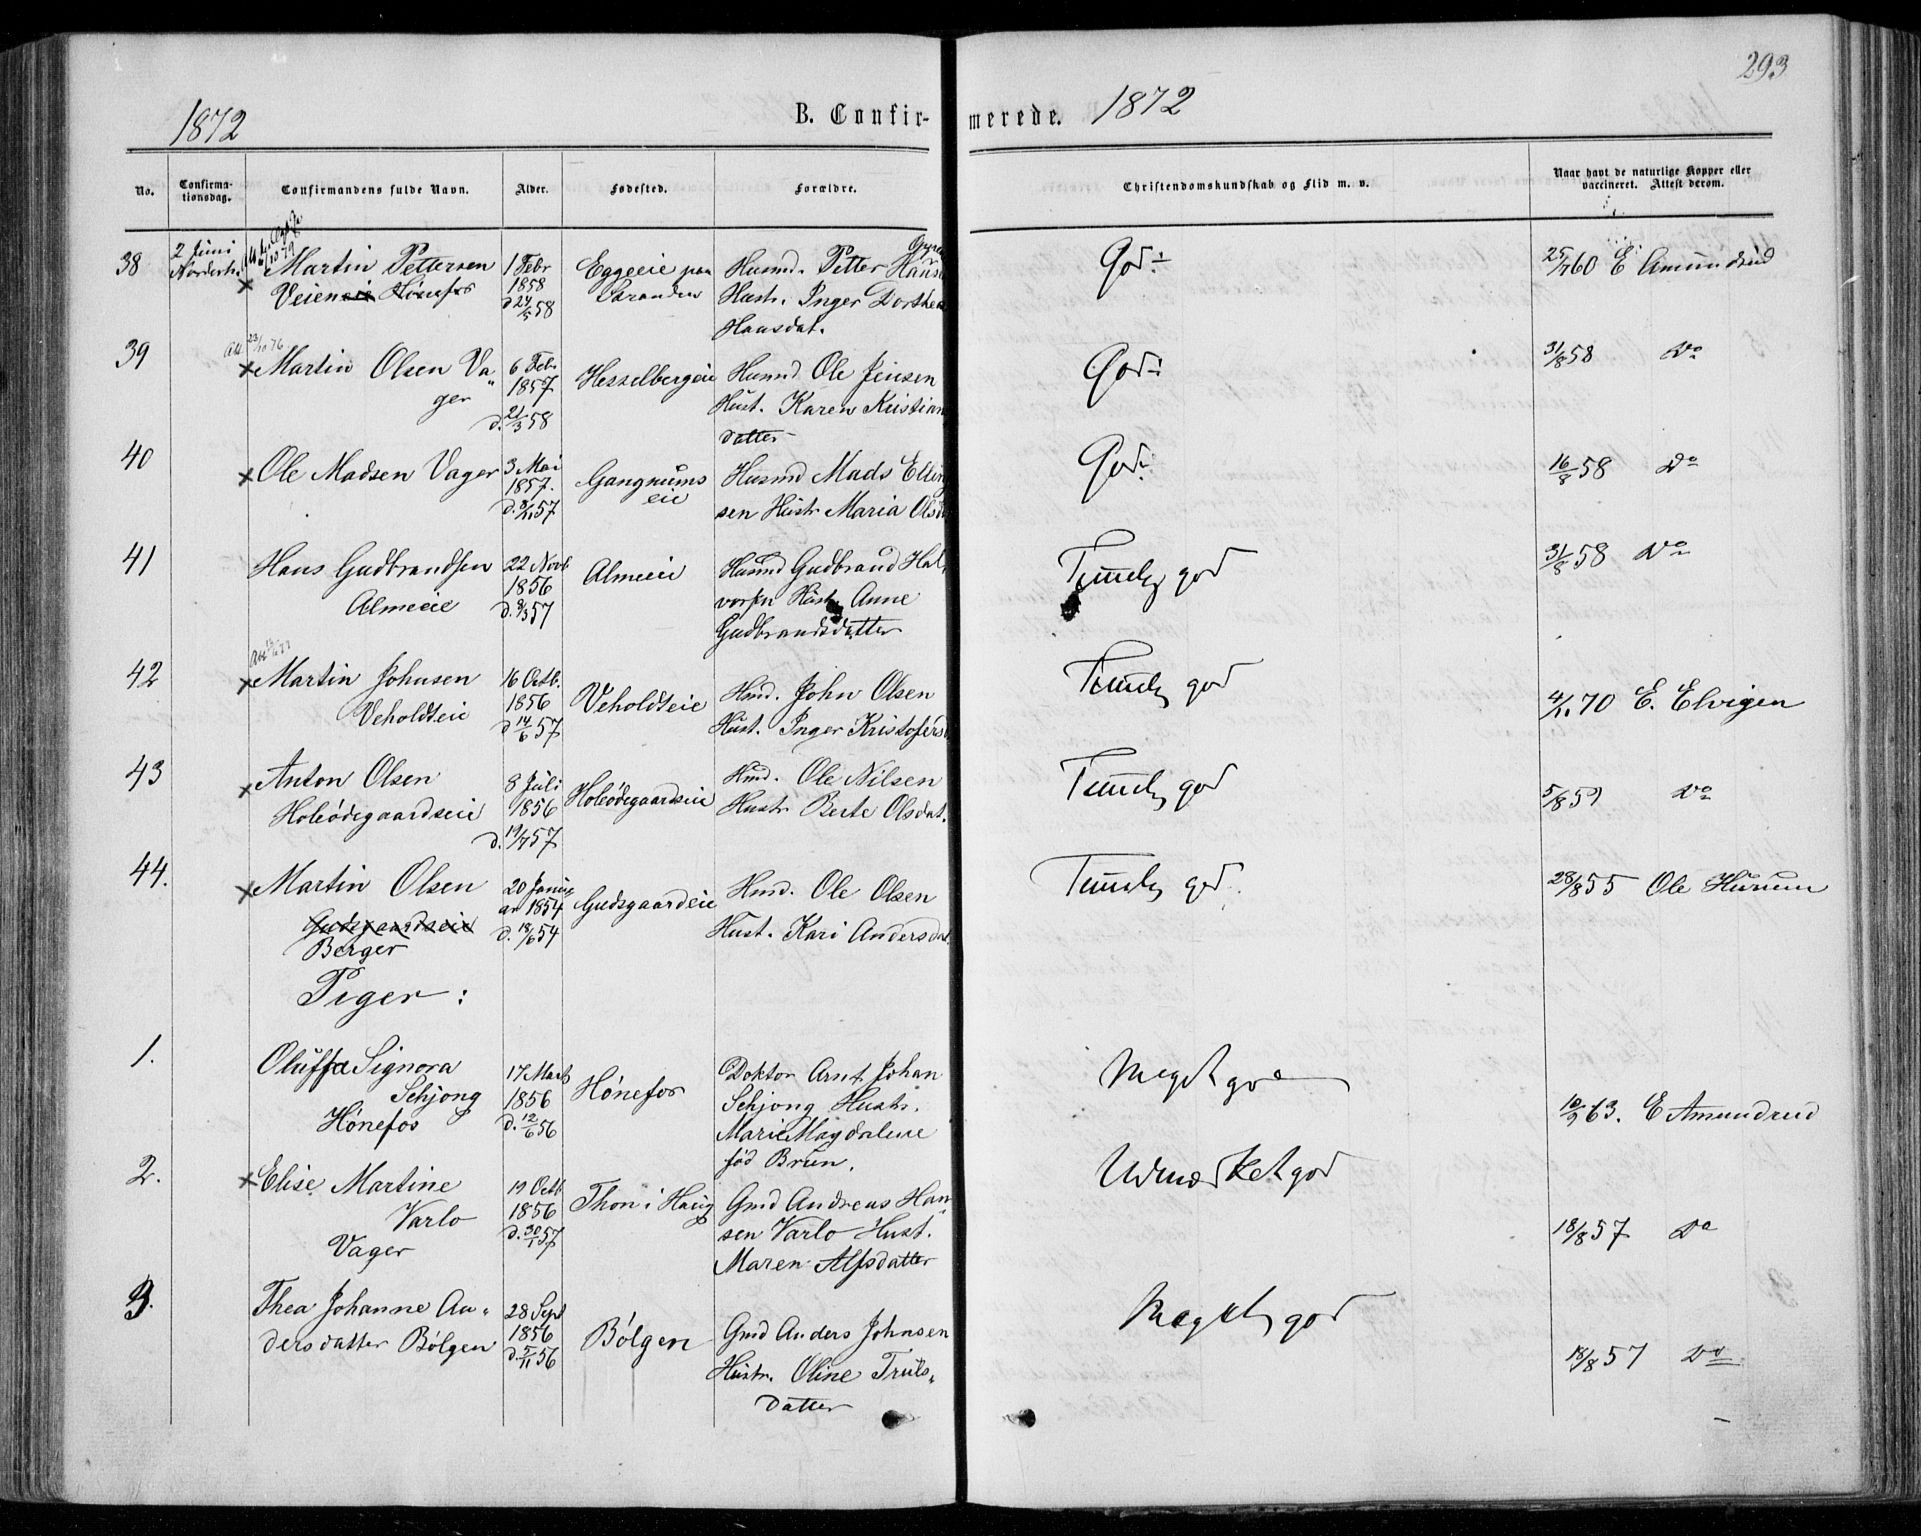 293
1872
B. Confir-merede.
1872
No.
Confirma-
tionsdag.
Confirmandens fulde Navn.
Alder.
Fødested.
Forældre.
Christendomskundskab og Flid m. v.
Naar havt de naturlige Kopper eller
vaccineret. Attest derom.
38
2 Juni
Norderh.
Martin Pettersen
Veieneie Hønefos
1 Febr
1858
d 24/5 58
Eggeeie paa
Husmd. Petter Hansen
Hustr. Inger Dorthea
Hansdat.
God
25/7 60 E Amundrud
39
Att 23/10 76
Martin Olsen Va
ger
6 Feb.
1857
d. 21/3 58
Hesselbergeie
Husmd Ole Jensen
Hust. Karen Kristian
datter
God
31/8 58 Do
40
Ole Madsen Vager
3 Mai
1857.
Gangnums
eie
Husmd Mads Elling
sen Hustr Maria Olsd
God
16/8 58 Do
41
Hans Gudbrandsen
Almeeie
22 Novb
1856
d. 8/3 57
Almeeie
Husmd Gudbrand Hal,
vorsen Hustr Anne
Gudbrandsdatter
Temelig god
31/8 58 Do
42
Martin Johnsen
Veholdteie
16 Octb.
1856
d 14/6 57
Veholdteie
Hmd. John Olsen
Hust. Inger Kristofersd
Temelig god
4/11 70 E. Elvigen
43
Anton Olsen
Holeødegaardseie
8 Juli
1856
d. 19/7 57
Holeødegaardseie
Hmd. Ole Nilsen
Hustr Berte Olsdat.
Temelig god
5/8 59 Do
44.
Martin Olsen
Gudsgaardseie
Berger
20 Janu
ar 1854
d. 18/6 54
Gudsgaardeie
Hmd. Ole Olsen
Hust. Kari Andersdat.
Temelig god.
28/8 55 Ole Hurum
Piger:
1.
Oluffa Signora
Sehjong
Hønefos
17 Marts
1856
d. 12/6 56
Hønefos
Doktor Arnt Johan
Sehjong Hustr.
Marie Magdalene
fød Brun.
Meget god
10/9 63. E Amundrud
2.
Elise Martine
Varlo
Vager
19 Octb
1856
d. 30/1 57
Thon i Haug
Gmd Andreas Han
sen Varlo Hust.
Maren Alfsdatter
Udmærket god
18/8 57 Do
3.
Thea Johanne An„
dersdatter Bølgen
28 Sept
1856
d. 5/11 56
Bølgen
Gmd Anders Johnsen
Hustr. Oline Truls„
datter
Meget god
18/8 57 Do